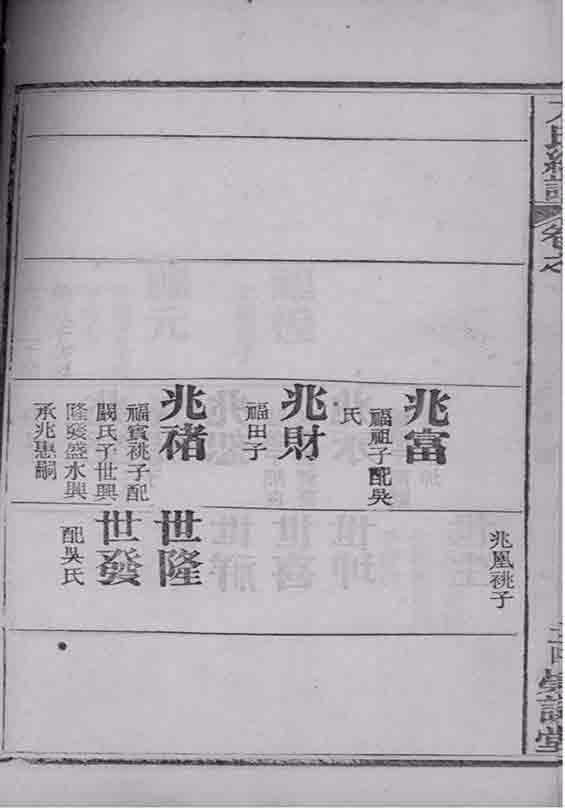 氏統譜
卷之
兆富
福祖子配吳
氏
兆財
福田子
兆禇
福賓祧子配
闕氏子世興
隆發盛水興
承兆惠嗣
兆凰祧子
世隆
世發
配吳氏